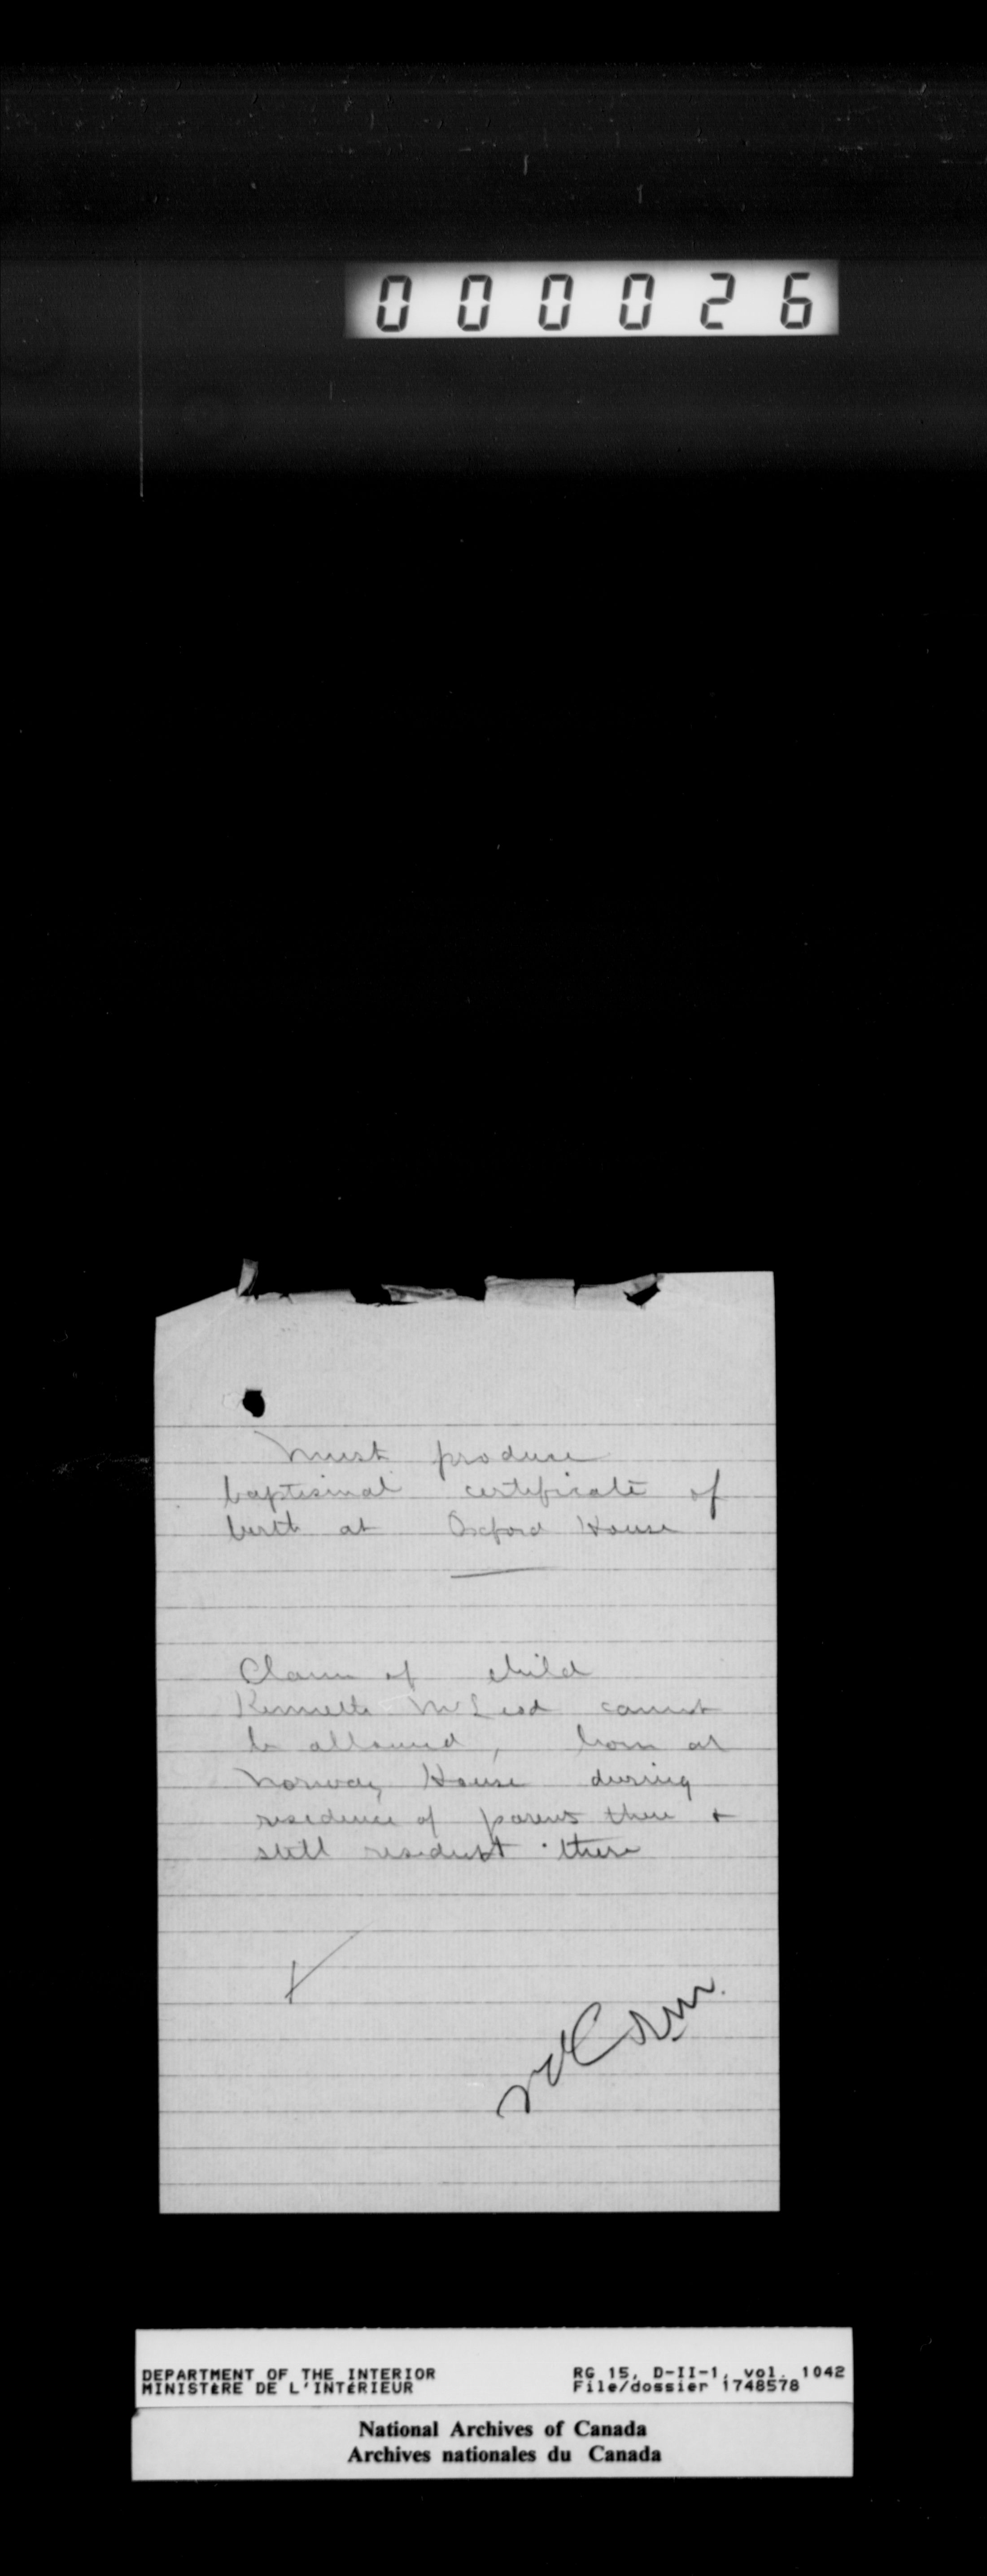 000026
Must produce
baptismal certificate of
birth at Oxford House
Claim of child
Kenneth McLeod cannot
be allowed, born at
Norway House during
residence of parents there +
still resident there
DEPARTMENT OF THE INTERIOR
MINISTÈRE DE L'INTÉRIEUR
RG 15, D-II-1, vol. 1042
File/dossier 1748578
National Archives of Canada
Archives nationales du Canada